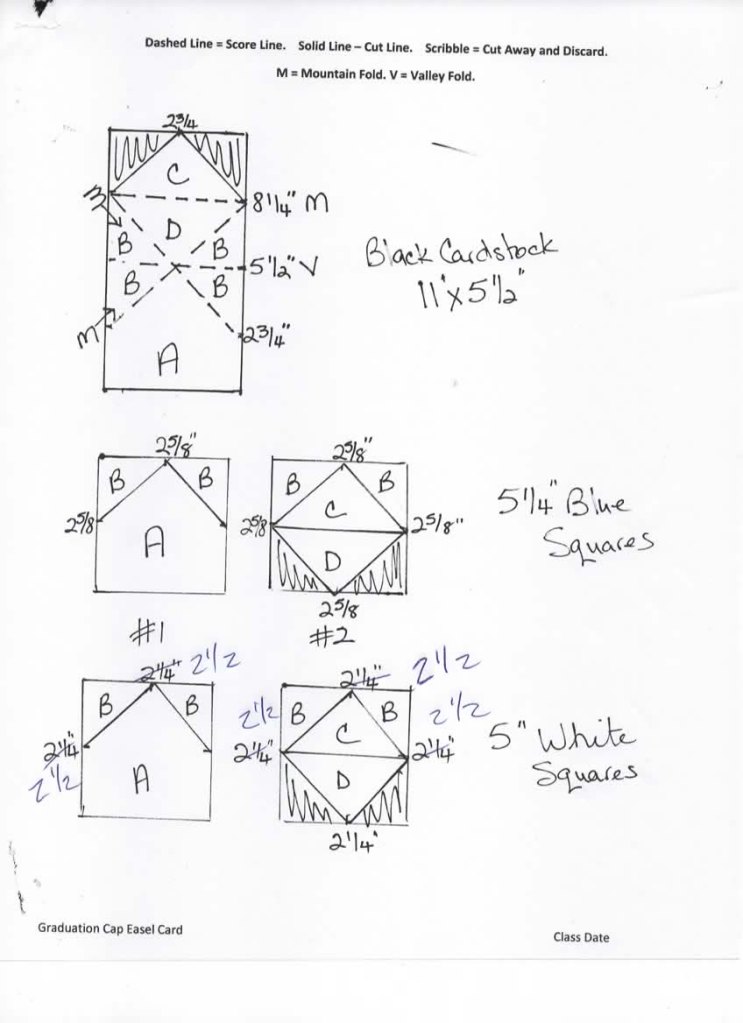 Dashed Line = Score Line. Solid Line – Cut Line. Scribble = Cut Away and Discard.
M = Mountain Fold. V = Valley Fold.
2 3/4
C
M
8 1/4" M
D
B B
5 1/2" V
B B
M
2 3/4"
A
Black Cardstock
11"x 5 1/2"
2 5/8"
B B
2 5/8
A
2 5/8"
B B
C
2 5/8 2 5/8"
D
2 5/8
5 1/4" Blue
Squares
#1 #2
2 1/4" 2 1/2
B B
2 1/4"
2 1/2
A
2 1/4" 2 1/2
2 1/2 B B 2 1/2
C
2 1/4" 2 1/4"
D
2 1/4"
5" White
Squares
Graduation Cap Easel Card
Class Date